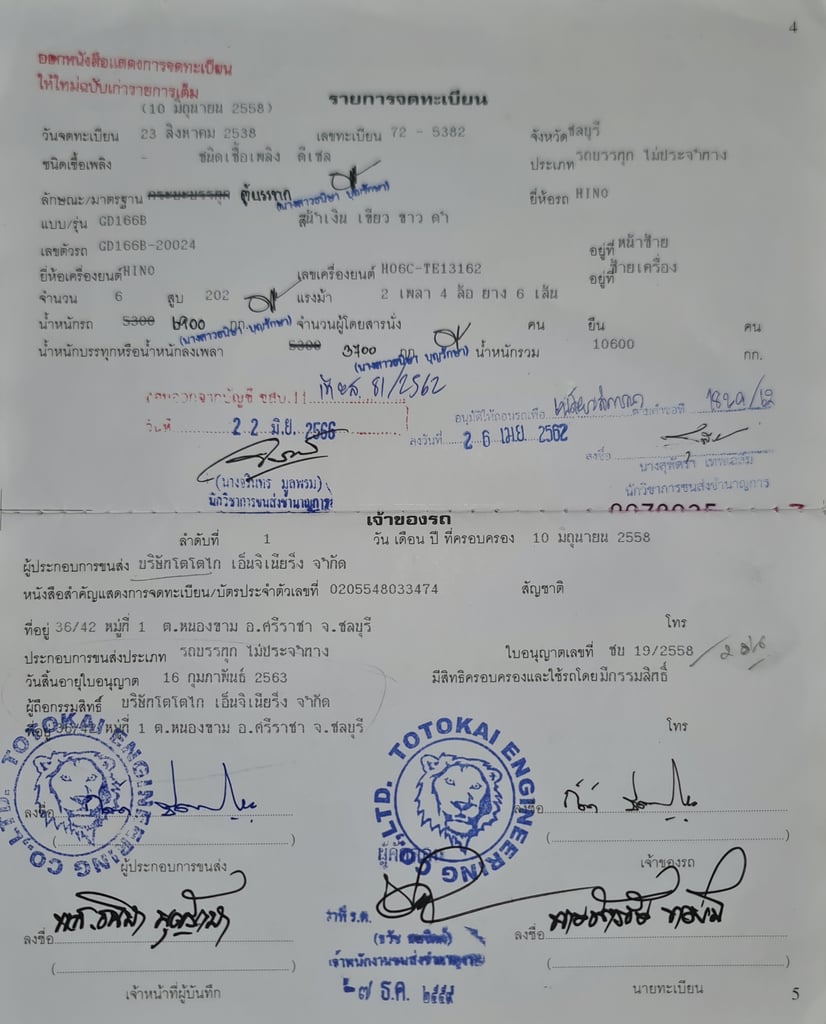 4
ออกหนังสือแสดงการจดทะเบียน
ให้ใหม่ฉบับเก่ารายการเต็ม
(10 มิถุนายน 2558)
รายการจดทะเบียน
วันจดทะเบียน 23 สิงหาคม 2538 เลขทะเบียน 72 - 5382 จังหวัด ชลบุรี
ชนิดเชื้อเพลิง - ชนิดเชื้อเพลิง ดีเซล ประเภท รถบรรทุก ไม่ประจำทาง
ลักษณะ/มาตรฐาน กระบะบรรทุก ตู้บรรทุก ยี่ห้อรถ HINO
แบบ/รุ่น GD166B สี น้ำเงิน เขียว ขาว ดำ
เลขตัวรถ GD166B-20024 อยู่ที่ หน้าซ้าย
ยี่ห้อเครื่องยนต์ HINO เลขเครื่องยนต์ H06C-TE13162 อยู่ที่ ซ้ายเครื่อง
จำนวน 6 สูบ 202 แรงม้า 2 เพลา 4 ล้อ ยาง 6 เส้น
น้ำหนักรถ 5300 6900 กก. จำนวนผู้โดยสารนั่ง คน ยืน คน
น้ำหนักบรรทุกหรือน้ำหนักลงเพลา 5300 3700 กก. น้ำหนักรวม 10600 กก.
81/2562
วันที่ 22 มิ.ย. 2566
อนุมัติให้ถอนรถเพื่อ
ลงวันที่ 26 เม.ย. 2562
ลงชื่อ
(นางจรินทร มูลพรม)
นักวิชาการขนส่งชำนาญการ
นักวิชาการขนส่งชำนาญการ
เจ้าของรถ
ลำดับที่ 1 วัน เดือน ปี ที่ครอบครอง 10 มิถุนายน 2558
ผู้ประกอบการขนส่ง บริษัทโตโตไก เอ็นจิเนียริ่ง จำกัด
หนังสือสำคัญแสดงการจดทะเบียน/บัตรประจำตัวเลขที่ 0205548033474 สัญชาติ
ที่อยู่ 36/42 หมู่ที่ 1 ต.หนองขาม อ.ศรีราชา จ.ชลบุรี โทร
ประกอบการขนส่งประเภท รถบรรทุก ไม่ประจำทาง ใบอนุญาตเลขที่ ชบ 19/2558
วันสิ้นอายุใบอนุญาต 16 กุมภาพันธ์ 2563 มีสิทธิครอบครองและใช้รถโดย มีกรรมสิทธิ์
ผู้ถือกรรมสิทธิ์ บริษัทโตโตไก เอ็นจิเนียริ่ง จำกัด
ที่อยู่ 36/42 หมู่ที่ 1 ต.หนองขาม อ.ศรีราชา จ.ชลบุรี โทร
TOTOKAI ENGINEERING CO.,LTD.
TOTOKAI ENGINEERING CO.,LTD.
ลงชื่อ ลงชื่อ
( ) ( )
ผู้ประกอบการขนส่ง เจ้าของรถ
ว่าที่ ร.ต.
ลงชื่อ ลงชื่อ
( ) ( )
เจ้าหน้าที่ผู้บันทึก นายทะเบียน
๒๗ ธ.ค. ๒๕๕๙
5